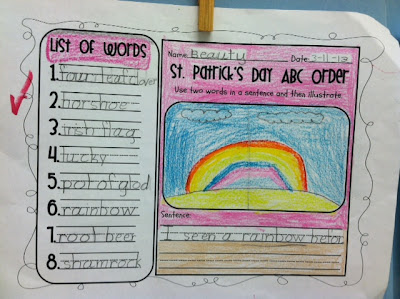 List of Words
1. four leaf clover
2. horshoe
3. irish flag
4. lucky
5. pot of glod
6. rainbow
7. root beer
8. shamrock
Name: Beauty Date: 3-11-13
St. Patrick's Day ABC Order
Use two words in a sentence and then illustrate.
Sentence:
I seen a rainbow befor